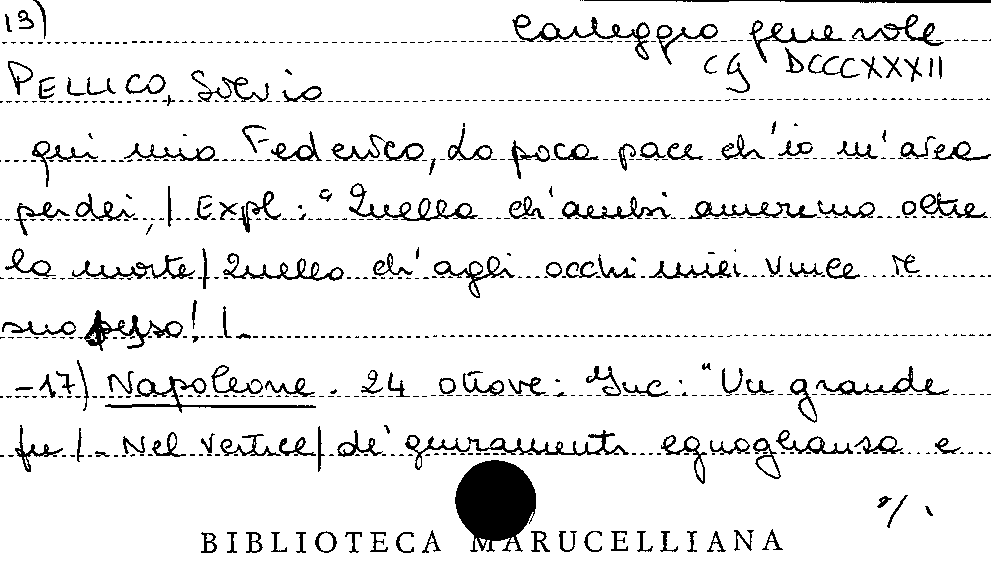 13)
Carteggio generale
CG DCCCXXXII
PELLICO, Silvio
qui mio Federico, La poca pace ch'io m'avea
perdei, / Expl: "Quella ch'ambi ameremo oltre
la morte / Quella ch'agli occhi miei vince
suo ! /.
-17) Napoleone. 24 ottave: Inc: "Un grande
fu /. Nel vertice / de' giuramenti eguaglianza e
./.
BIBLIOTECA MARUCELLIANA